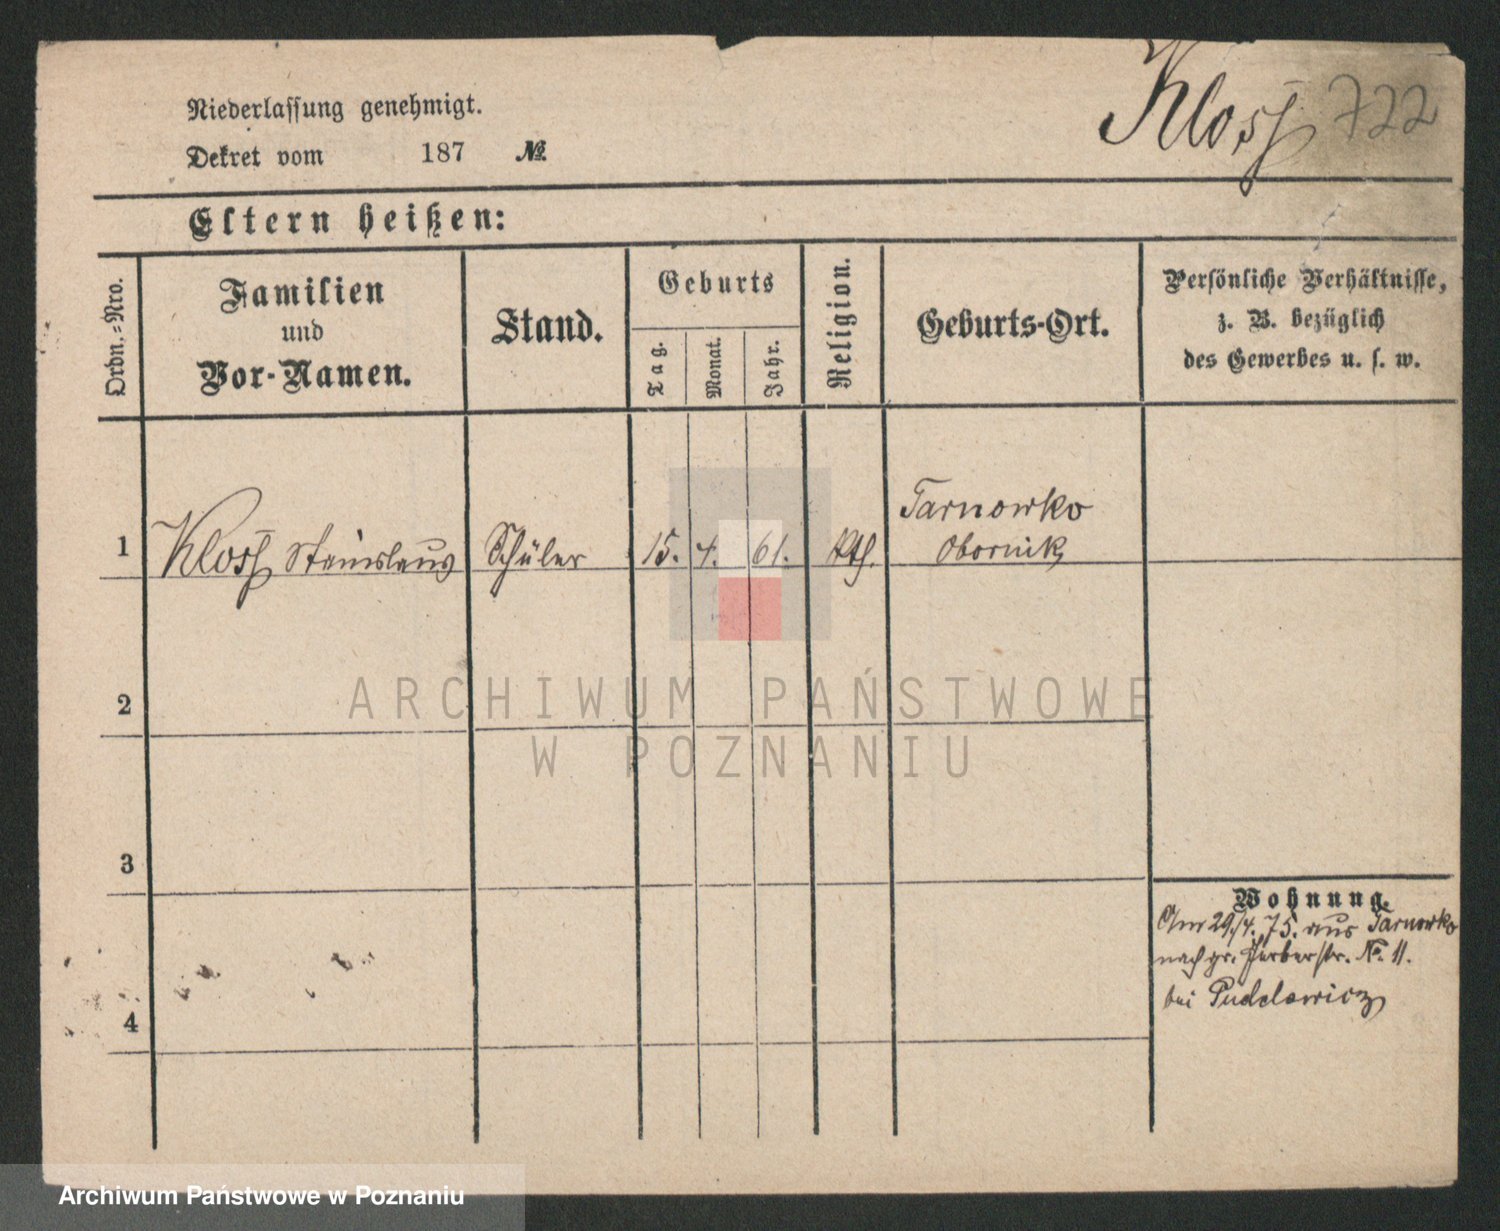 Kloss 722
Niederlassung genehmigt.
Dekret vom 187 №
Eltern heißen:
Ordn.=Nro.
Familien
und
Vor-Namen.
Stand.
Geburts
Tag.
Monat.
Jahr.
Religion.
Geburts-Ort.
Persönliche Verhältnisse,
z. B. bezüglich
des Gewerbes u. s. w.
1 Kloss Stanislaus Schüler 15. 4. 61. kth. Tarnowko
Obornik
2
3
4
Wohnung.
Am 29./4. 75. aus Tarnowko
nach gr. Gerberstr. No. 11.
bei Pudelewicz
ARCHIWUM PAŃSTWOWE
W POZNANIU
Archiwum Państwowe w Poznaniu